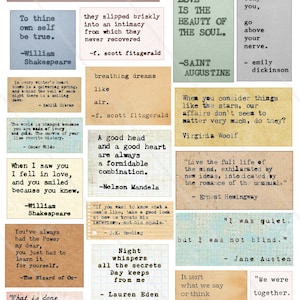 To thine
own self
be true.
-William
Shakespeare
they slipped briskly
into an intimacy
from which they
never recovered
-f. scott fitzgerald
LOVE
IS THE
BEAUTY OF
THE SOUL.
-SAINT
AUGUSTINE
you,
go
above
your
nerve.
- emily
dickinson
breathing dreams
like
air.
-f. scott fitzgerald
When you consider things
like the stars, our
affairs don't seem to
matter very much, do they?
Virginia Woolf
A good head
and a good heart
are always
a formidable
combination.
-Nelson Mandela
When I saw you
I fell in love,
and you smiled
because you knew.
-William
Shakespeare
"Live the full life of
the mind, exhilarated by
new ideas, intoxicated by
the romance of the unusual.
- Ernest Hemingway
"I was quiet,
but I was not blind."
- Jane Austen
You've always
had the Power
my dear,
you just had
to learn it
for yourself.
-The Wizard of Oz-
Night
whispers
all the secrets
Day keeps
from me
- Lauren Eden
It isn't
what we say
or think
"We were
together.
What is done